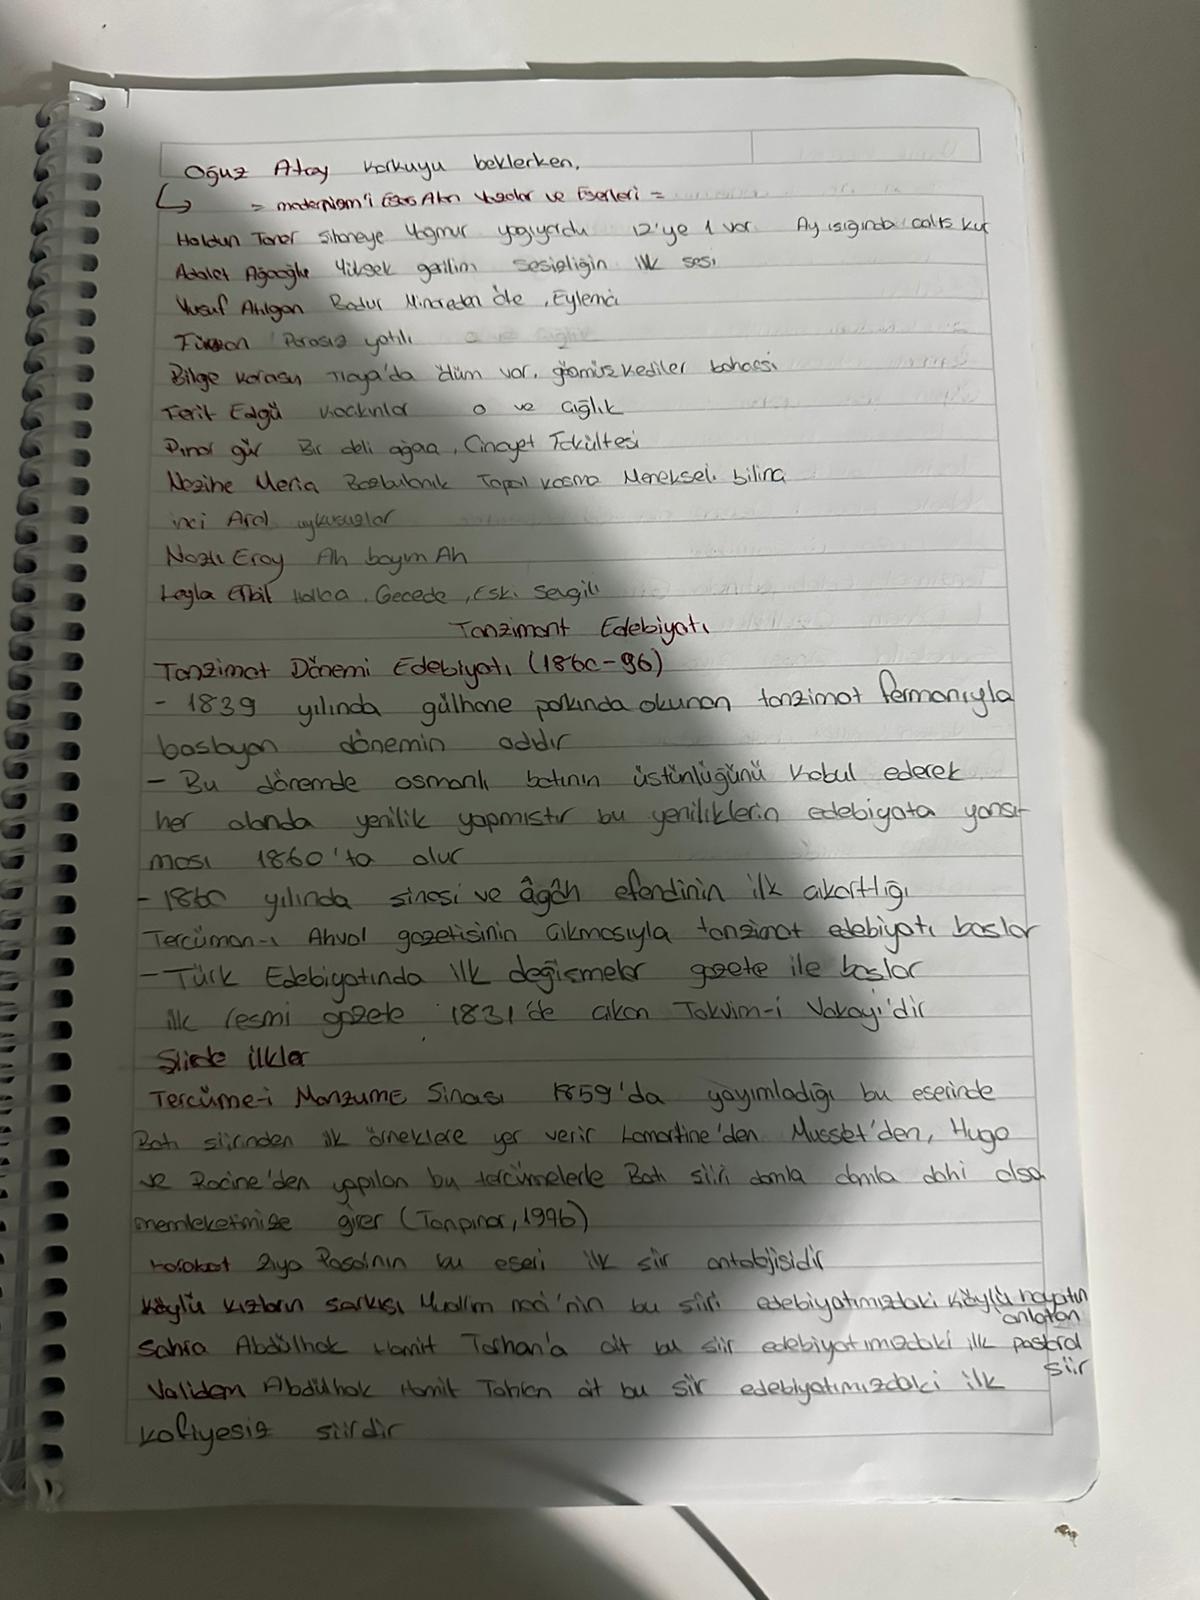 Oğuz Atay korkuyu beklerken,
= modernizm'i Esas Alan Yazarlar ve Eserleri =
Haldun Taner Sishaneye Yagmur yagıyordu 12'ye 1 var Ay ısıgında calıs kur
Adalet Ağaoğlu Yüksek gerilim Sessizliğin ilk sesi
Yusuf Atılgan Bodur Minareden öte, Eylemci
Füruzan Parasız yatılı
Bilge Karasu Troya'da ölüm var, göçmüs kediler bahcesi
Ferit Edgü Kackınlar o ve Cığlık
Pınar gür Bir deli ağac, Cinayet Fakültesi
Nezihe Meric Bozbulanık Topal kosma Menekseli bilinc
inci Aral uykusuzlar
Nazlı Eray Ah bayım Ah
Leyla Erbil Hallac, Gecede, Eski Sevgili
Tanzimant Edebiyatı
Tanzimat Dönemi Edebiyatı (1860-96)
- 1839 yılında gülhane parkında okunan tanzimat fermanıyla
baslayan dönemin adıdır
- Bu dönemde osmanlı batının üstünlüğünü kabul ederek
her alanda yenilik yapmıstır bu yeniliklerin edebiyata yansı-
ması 1860'ta olur
- 1860 yılında sinasi ve âgâh efendinin ilk cıkarttığı
Tercüman-ı Ahval gazetisinin cıkmasıyla tanzimat edebiyatı baslar
- Türk Edebiyatında ilk değismeler gazete ile baslar
ilk resmi gazete 1831'de cıkan Takvim-i Vakayi'dir
Siirde ilkler
Tercüme-i Manzume Sinasi 1859'da yayımladığı bu eserinde
Batı siirinden ilk örneklere yer verir Lamartine'den Musset'den, Hugo
ve Racine'den yapılan bu tercümelerle Batı siiri damla damla dahi olsa
memleketimize girer (Tanpınar, 1996)
Harabat Ziya Pasa'nın bu eseri ilk siir antolojisidir
Köylü kızların sarkısı Muallim naci'nin bu siiri edebiyatımızdaki Köylü hayatın
anlatan
Sahra Abdülhak Hamit Tarhan'a ait bu siir edebiyatımızdaki ilk pastoral
siir
Validem Abdülhak Hamit Tahran ait bu siir edebiyatımızdaki ilk
kafiyesiz siirdir